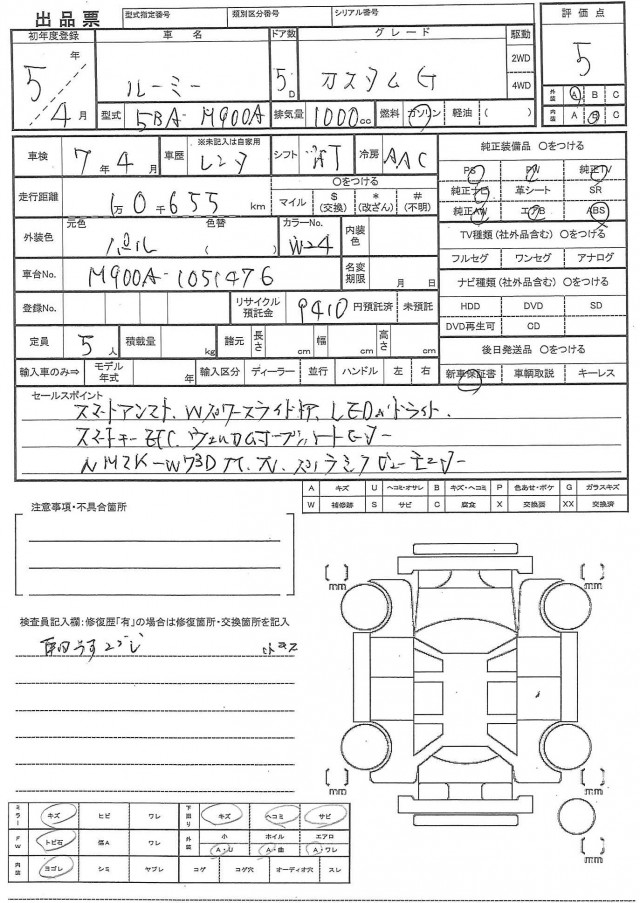 出品票 型式指定番号 類別区分番号 シリアル番号
評価点
初年度登録 車名 ドア数 グレード 駆動
5年4月 ルーミー 5D カスタムG 2WD 4WD
5
外装 A B C
内装 A B C
型式 5BA-M900A 排気量 1000cc 燃料 ガソリン・軽油( )
車検 7年4月 車歴 ※未記入は自家用 レンタ シフト 冷房 AAC
純正装備品 ○をつける
PS PW 純正TV
純正ナビ 革シート SR
純正AW エアB ABS
走行距離 1万0千655km
○をつける
マイル $(交換) *(改ざん) #(不明)
外装色 元色 パール 色替 ( ) カラーNo. W24 内装色
TV種類(社外品含む)○をつける
フルセグ ワンセグ アナログ
車台No. M900A-1051476 名変期限 月 日
ナビ種類(社外品含む)○をつける
HDD DVD SD
DVD再生可 CD
登録No. リサイクル預託金 9410円預託済 未預託
定員 5人 積載量 kg 諸元 長さ cm 幅 cm 高さ cm
後日発送品 ○をつける
新車保証書 車輌取説 キーレス
輸入車のみ⇒ モデル年式 年 輸入区分 ディーラー 並行 ハンドル 左 右
セールスポイント
スマートアシスト、Wパワースライドドア、LEDヘッドライト、
スマートキー ETC
NMZK-W73D
A キズ U ヘコミ・オサレ B キズ・ヘコミ P 色あせ・ボケ G ガラスキズ
W 補修跡 S サビ C 腐食 X 交換要 XX 交換済
注意事項・不具合箇所
検査員記入欄:修復歴「有」の場合は修復箇所・交換箇所を記入
[ ]mm [ ]mm
[ ]mm [ ]mm
[ ]mm
ミラー キズ ヒビ ワレ 下回り キズ ヘコミ サビ
FW トビ石 傷A ワレ 外装 小 A・U ホイル A・曲 エアロ A・ワレ
内装 ヨゴレ シミ ヤブレ コゲ コゲ穴 オーディオ穴 スレ